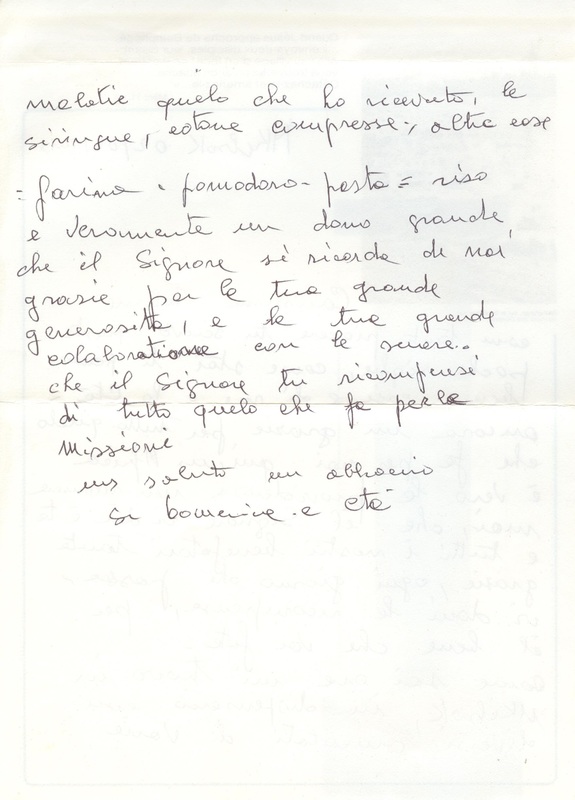 malatie quelo che ho ricevuto, le
siringue, cotone compresse, altre cose
= farina - pomodoro - pasta = riso
e veramente un dono grande,
che il Signore si ricorda di noi,
grasie per la tua grande
generosità, e la tua grande
colaboratione con le suore..
che il Signore tu ricompensi
di tutto quelo che fa per le
missioni
uns saluto un abbracio
Sr e Età